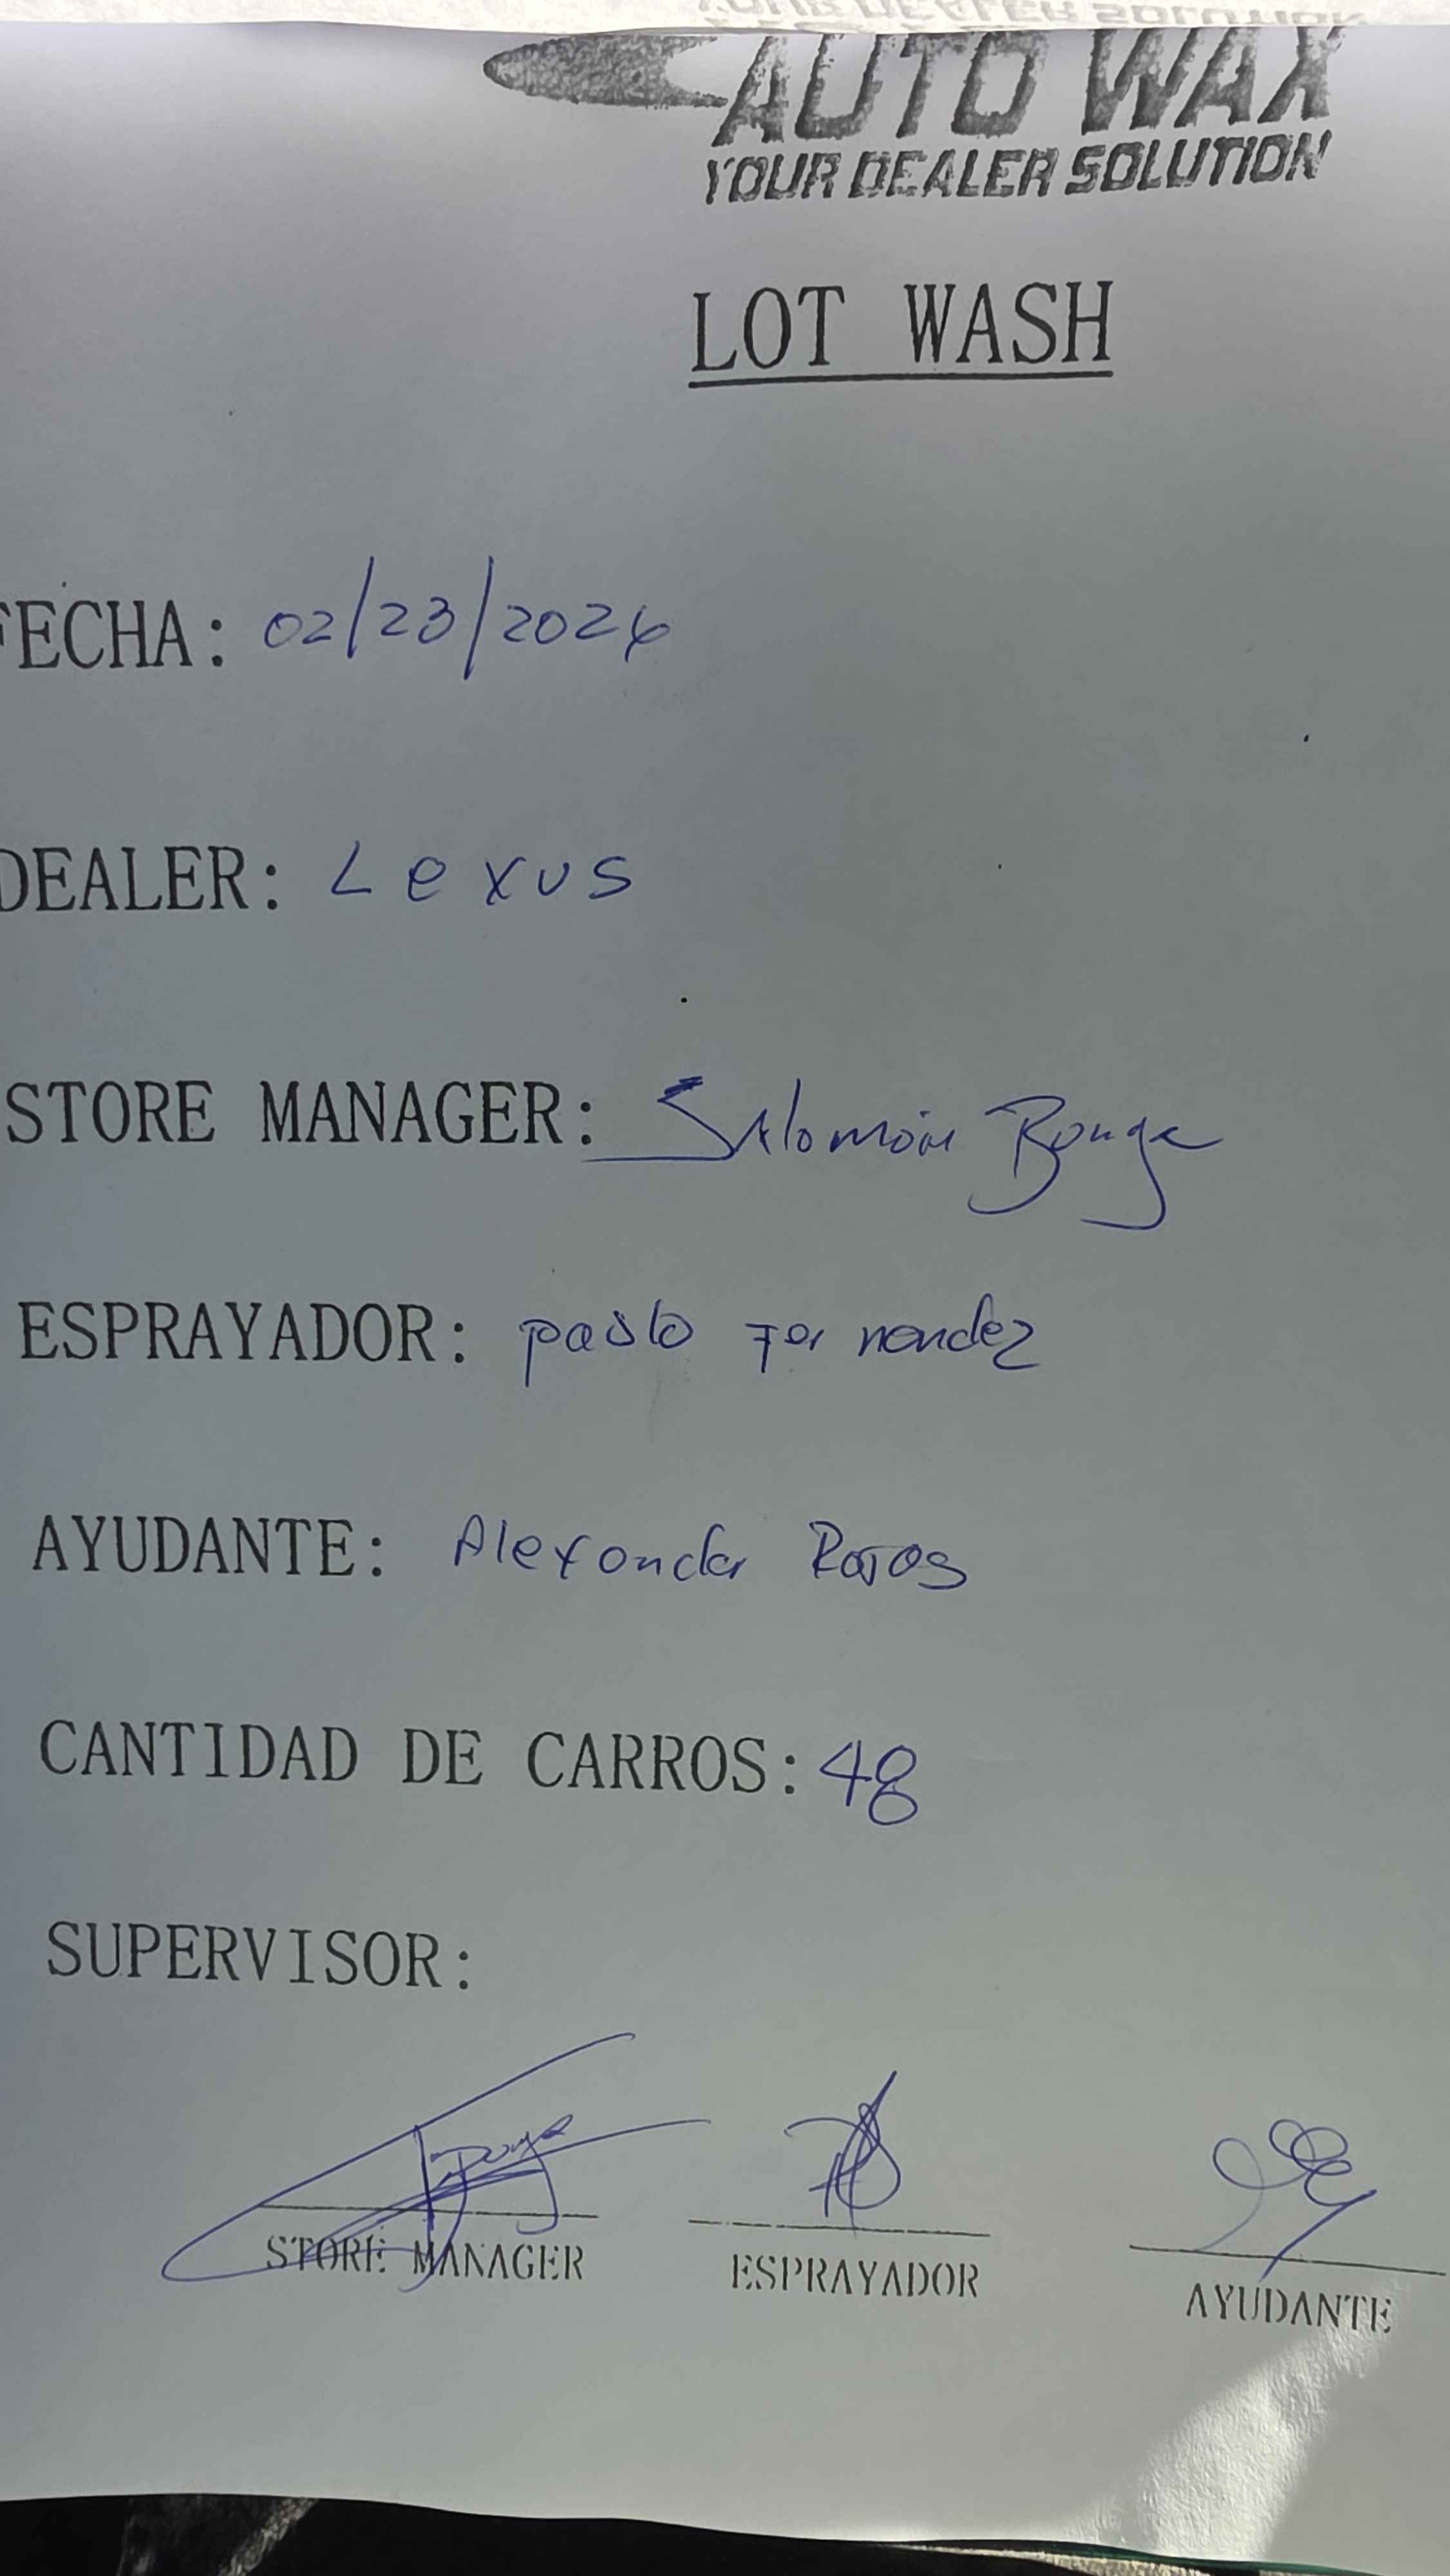 AUTO WAX
YOUR DEALER SOLUTION
LOT WASH
FECHA: 02/23/2026
DEALER: Lexus
STORE MANAGER: Salomón
ESPRAYADOR: pablo Fernandez
AYUDANTE: Alexander Rojas
CANTIDAD DE CARROS: 48
SUPERVISOR:
STORE MANAGER ESPRAYADOR AYUDANTE